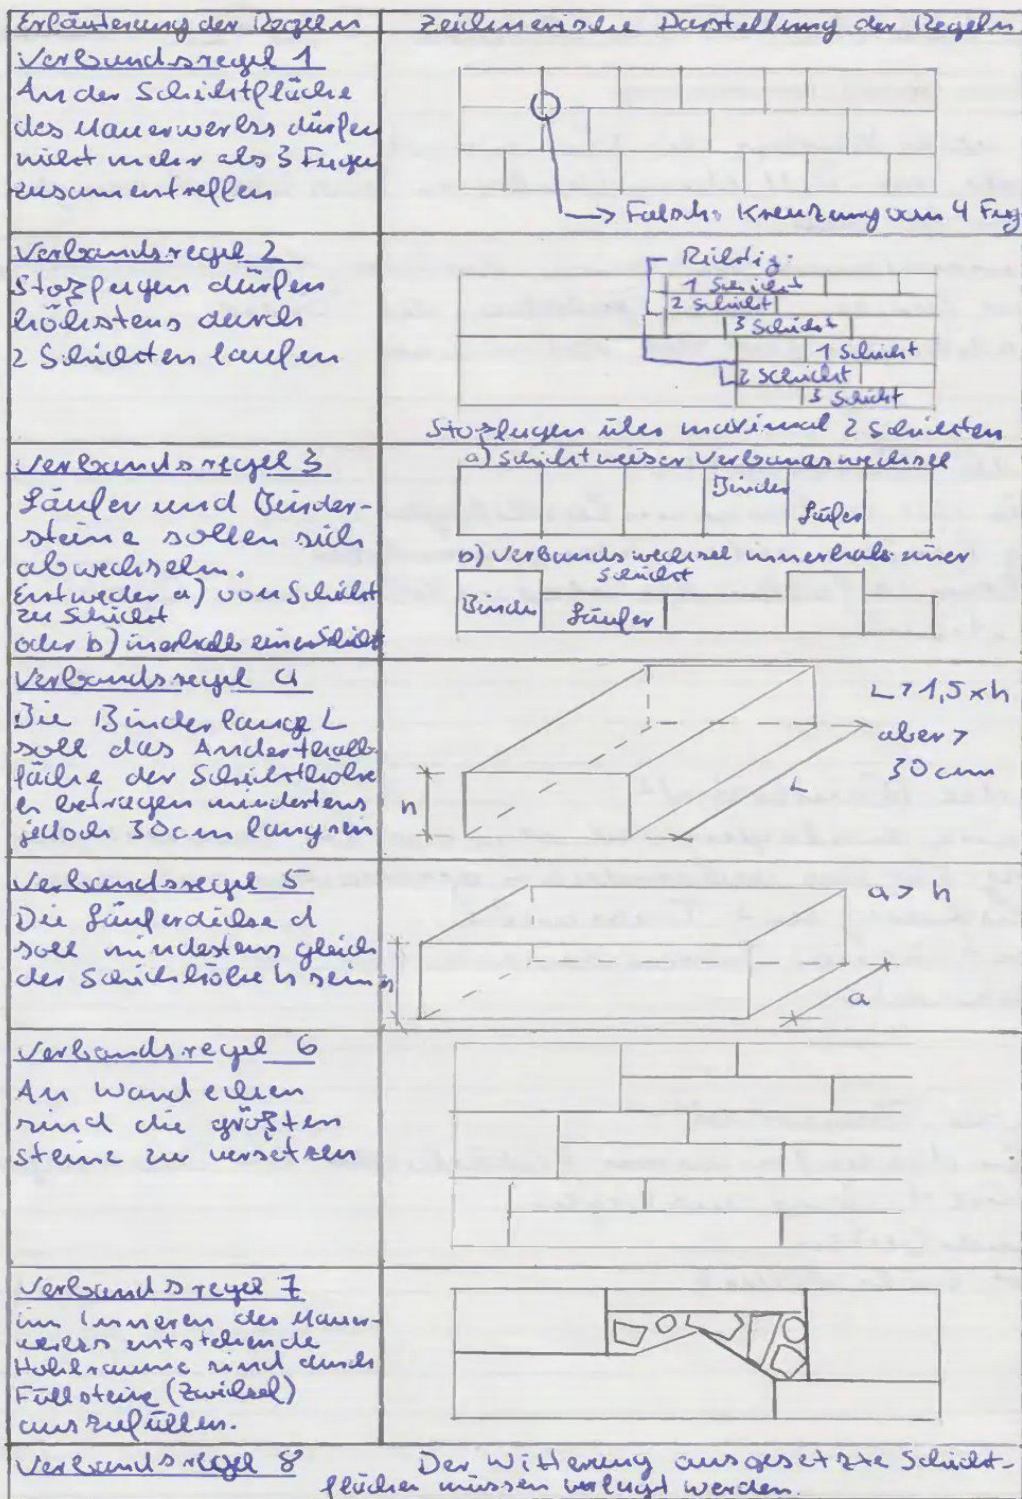 Erläuterung der Regeln
Zeichnerische Darstellung der Regeln
Verbandsregel 1
An der Schichtfläche
des Mauerwerks dürfen
nicht mehr als 3 Fugen
zusamentreffen
Falsch: Kreuzung von 4 Fug
Verbandsregel 2
Stoßfugen dürfen
höchstens durch
2 Schichten laufen
Richtig:
1 Schicht
2 Schicht
3 Schicht
1 Schicht
2 Schicht
3 Schicht
Stoßfugen über maximal 2 Schichten
Verbandsregel 3
Läufer und Binder-
steine sollen sich
abwechseln.
Entweder a) von Schicht
zu Schicht
oder b) innerhalb einer Schicht
a) Schichtweiser Verbandswechsel
Binder
Läufer
b) Verbandswechsel innerhalb einer
Schicht
Binder
Läufer
Verbandsregel 4
Die Binderlänge L
soll das Anderthalb-
fache der Schichthöhe
h betragen mindestens
jedoch 30cm lang sein
L > 1,5 x h
aber >
30 cm
h
L
Verbandsregel 5
Die Läuferdicke d
soll mindestens gleich
der Schichthöhe h sein
a > h
h
a
Verbandsregel 6
An Wandecken
sind die größten
Steine zu versetzen
Verbandsregel 7
im Inneren des Mauer-
werks entstehende
Hohlräume sind durch
Füllsteine (Zwickel)
auszufüllen.
Verbandsregel 8
Der Witterung ausgesetzte Schicht-
flächen müssen verfugt werden.